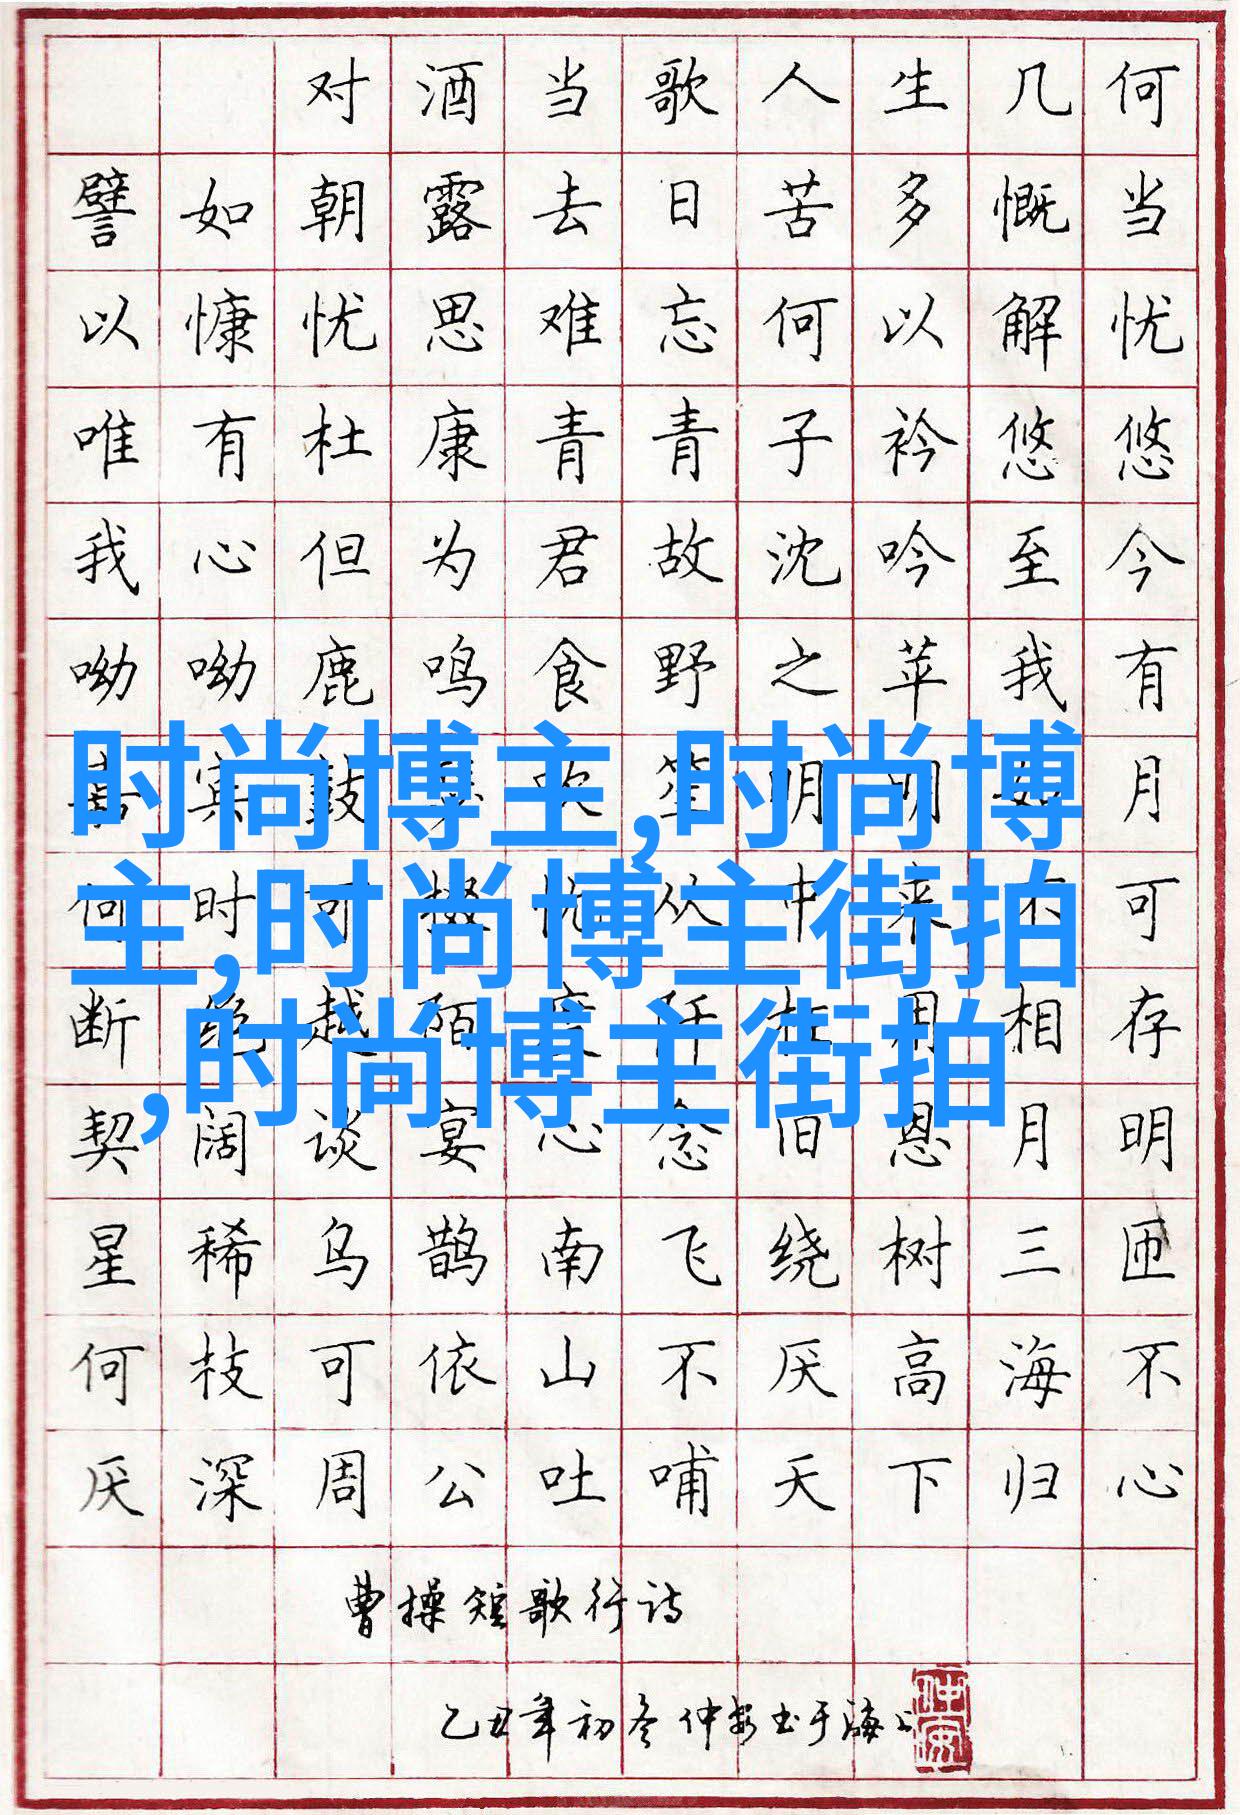 对酒当歌人生几何
譬如朝露去日苦多慨当
以慷忧思难忘何以解忧
唯有杜康青青子衿悠悠
我心但为君故沈吟至今
呦呦鹿鸣食野之苹我有
嘉宾鼓瑟吹笙明明如月
何时可掇忧从中来不可
断绝越陌度阡枉用相存
契阔谈宴心念旧恩月明
星稀乌鹊南飞绕树三匝
何枝可依山不厌高海不
厌深周公吐哺天下归心
曹操短歌行诗
乙丑年初冬仲安书于海上
仲安
时尚博主,时尚博
主,时尚博主街拍
,时尚博主街拍